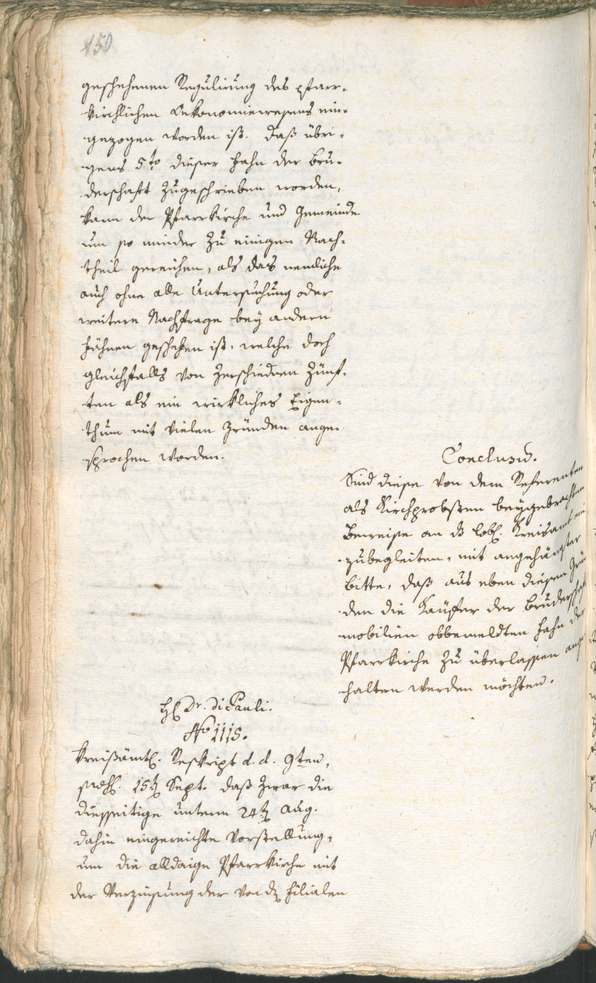 150
geschehenen Regulirung des pfarr-
kirchlichen Oekonomiewesens ein-
gezogen worden ist. Daß übri-
gens 5to dieser Fahn der Bru-
derschaft zugeschrieben worden,
kann der Pfarrkirche und Gemeinde
um so minder zu einigen Nach-
theil gereichen, als das nemliche
auch ohne alle Untersuchung oder
weitere Nachfrage bey andern
Fähnen geschehen ist, welche doch
gleichfalls von verschiednen Zünf-
ten als ein wirkliches Eigen-
thum mit vielen Gründen ange-
sprochen worden.
Conclusum.
Sind diese von dem Referenten
als Kirchprobsten beygebrachten
Beweise an d löbl. Kreisamt ein
zubegleiten, mit angehängter
Bitte, daß aus eben diesen Grün
den die Käufer der Bruderschafts
mobilien obbemeldten Fahn der
Pfarrkirche zu überlassen ange
halten werden möchten.
H Dr. di Pauli.
No 1115.
Kreisämtl. Reskript d. d. 9ten,
15t Sept. daß zwar die
diesseitige unterm 24t Aug.
dahin eingereichte Vorstellung,
um die alldaige Pfarrkirche mit
der Verzinsung der von d Filialen